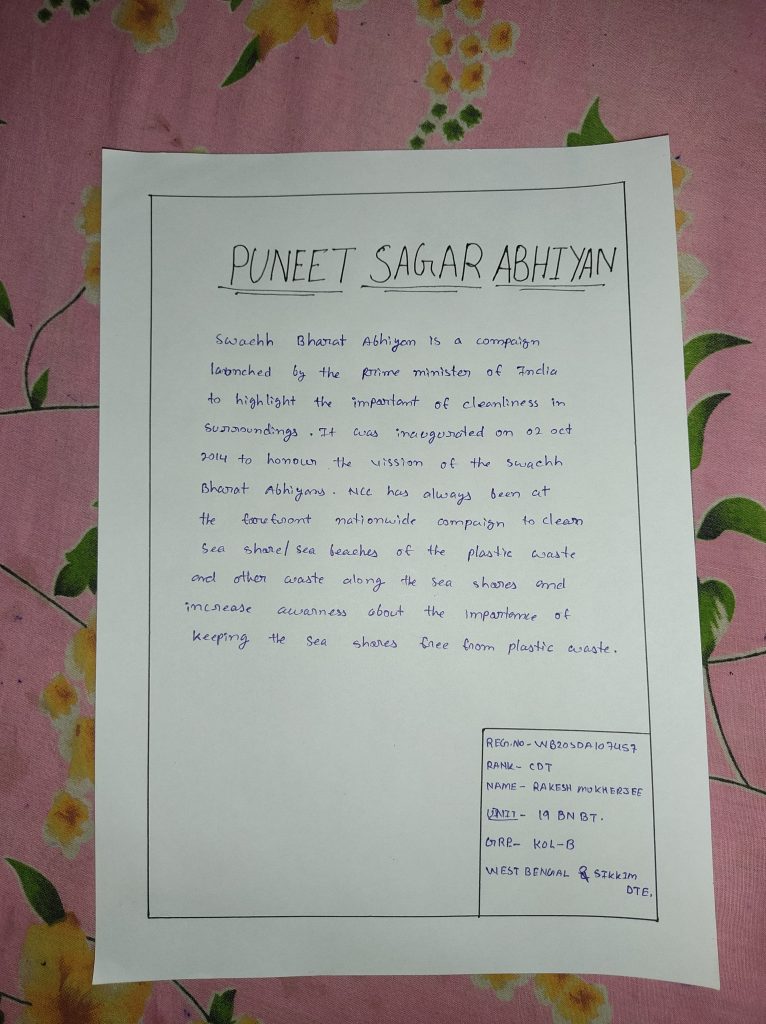 PUNEET SAGAR ABHIYAN
Swachh Bharat Abhiyan is a compaign
launched by the prime minister of India
to highlight the important of cleanliness in
surroundings. It was inaugurated on 02 oct
2014 to honour the vission of the swachh
Bharat Abhiyans. NCC has always been at
the forefront nationwide compaign to clean
sea share/ sea beaches of the plastic waste
and other waste along the sea shares and
increase awarness about the importance of
keeping the sea shares free from plastic waste.
REG.NO- WB20SDA107457
RANK- CDT
NAME- RAKESH MUKHERJEE
UNIT- 19 BN BT.
GRP- KOL-B
WEST BENGAL & SIKKIM
DTE.